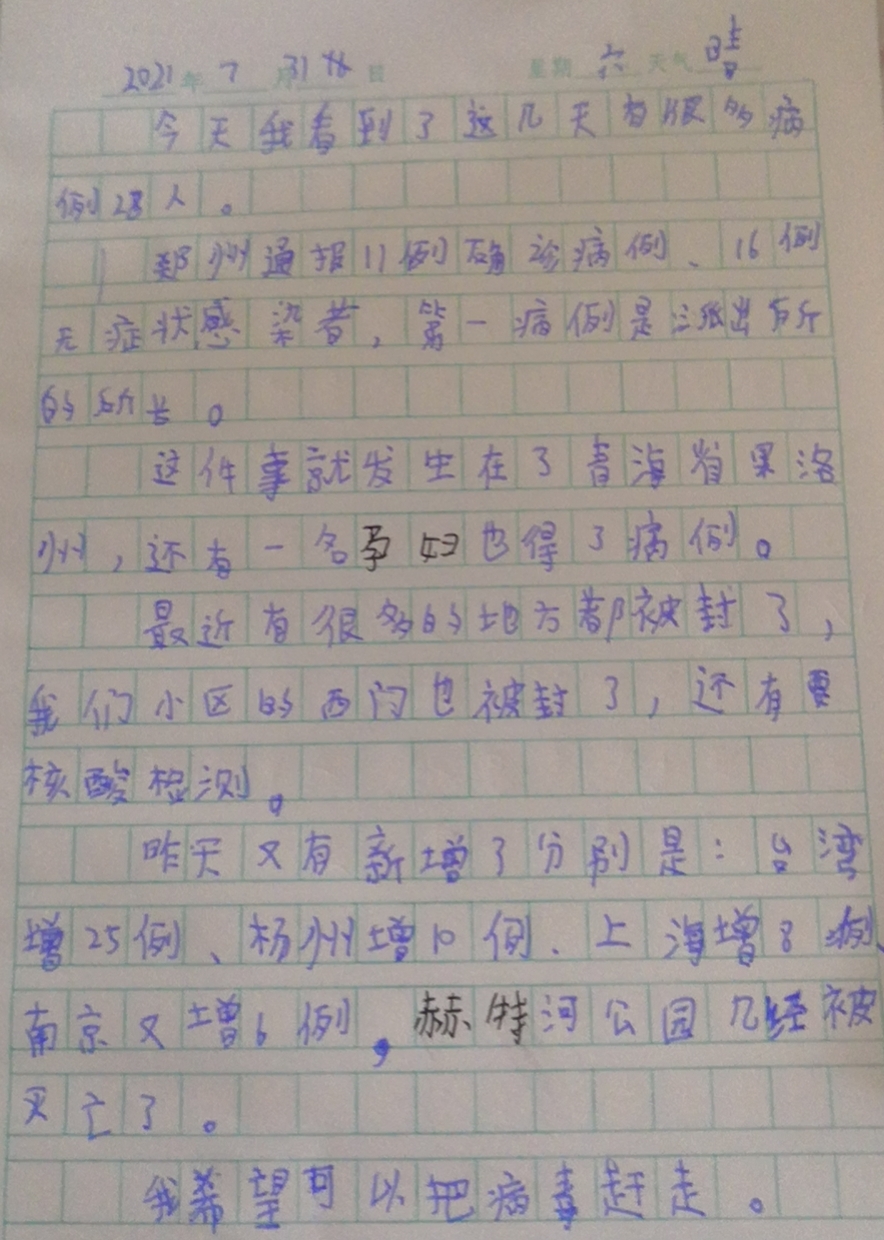 2021年7月31日 星期六 天气晴
今天我看到了这几天有很多病
例28人。
郑州通报11例确诊病例、16例
无症状感染者，第一病例是派出所
的所长。
这件事就发生在了青海省果洛
州，还有一名孕妇也得了病例。
最近有很多的地方都被封了，
我们小区的西门也被封了，还有要
核酸检测。
昨天又有新增了分别是：台湾
增25例、杨州增10例、上海增8例、
南京又增6例，赫特河公园几经被
灭亡了。
我希望可以把病毒赶走。